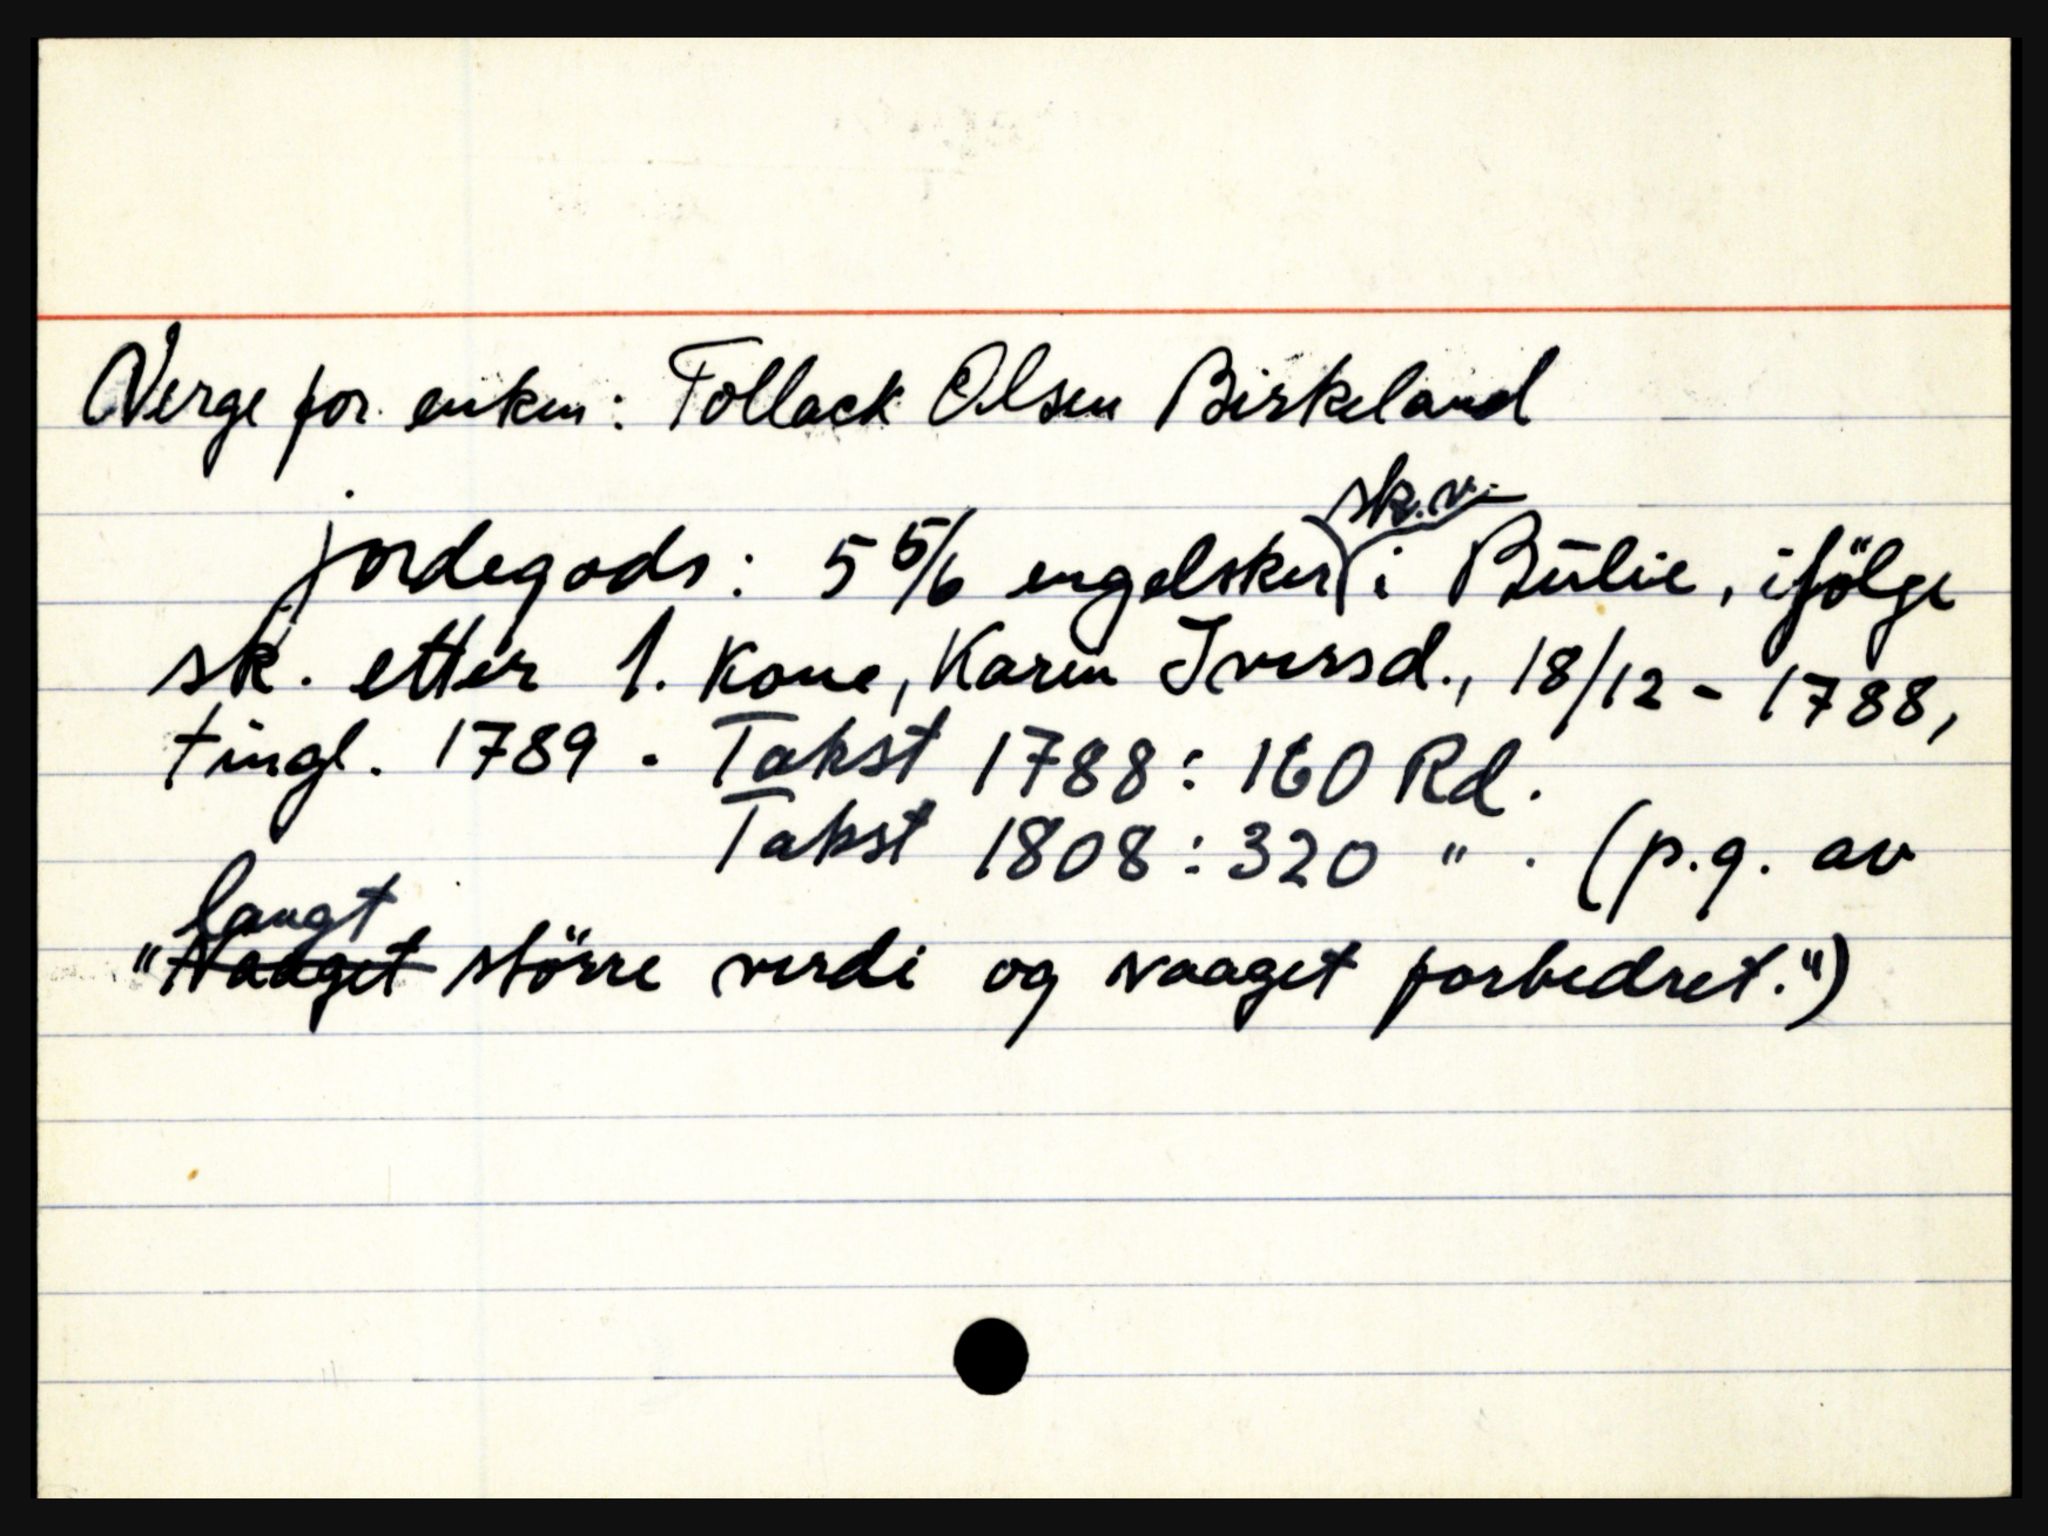 Verge for enken: Tollack Olsen Birkeland
sk.v.
jordegods: 5 5/6 engelsker i Būlie, ifölge
sk. etter 1. kone, Karen Iversd., 18/12 - 1788,
tingl. 1789. Takst 1788: 160 Rd.
Takst 1808: 320 " . (p.g. av
langt
"Naaget större verdi og naaget forbedret.")